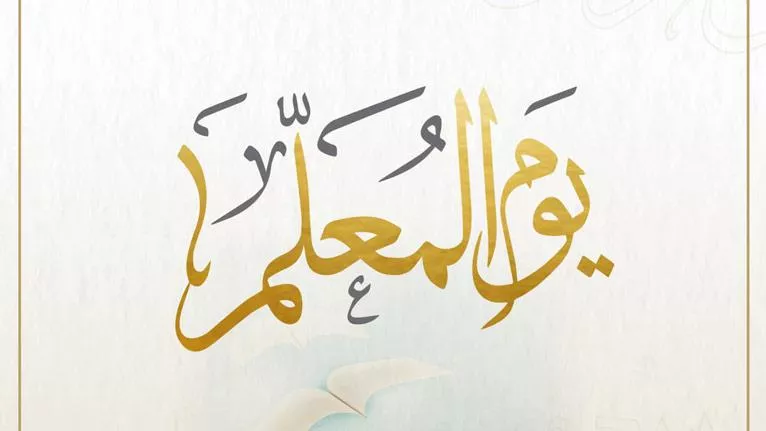 يَوم المُعلّم